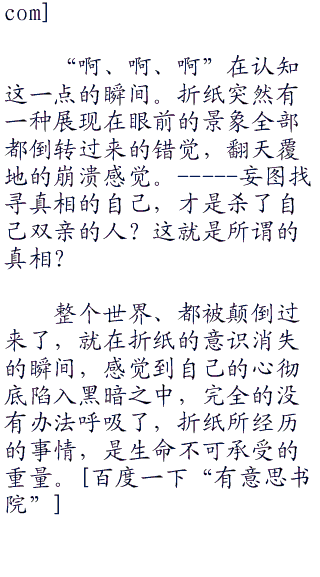 com]
“啊、啊、啊”在认知
这一点的瞬间。折纸突然有
一种展现在眼前的景象全部
都倒转过来的错觉，翻天覆
地的崩溃感觉。-----妄图找
寻真相的自己，才是杀了自
己双亲的人？这就是所谓的
真相？
整个世界、都被颠倒过
来了，就在折纸的意识消失
的瞬间，感觉到自己的心彻
底陷入黑暗之中，完全的没
有办法呼吸了，折纸所经历
的事情，是生命不可承受的
重量。[百度一下“有意思书
院”]